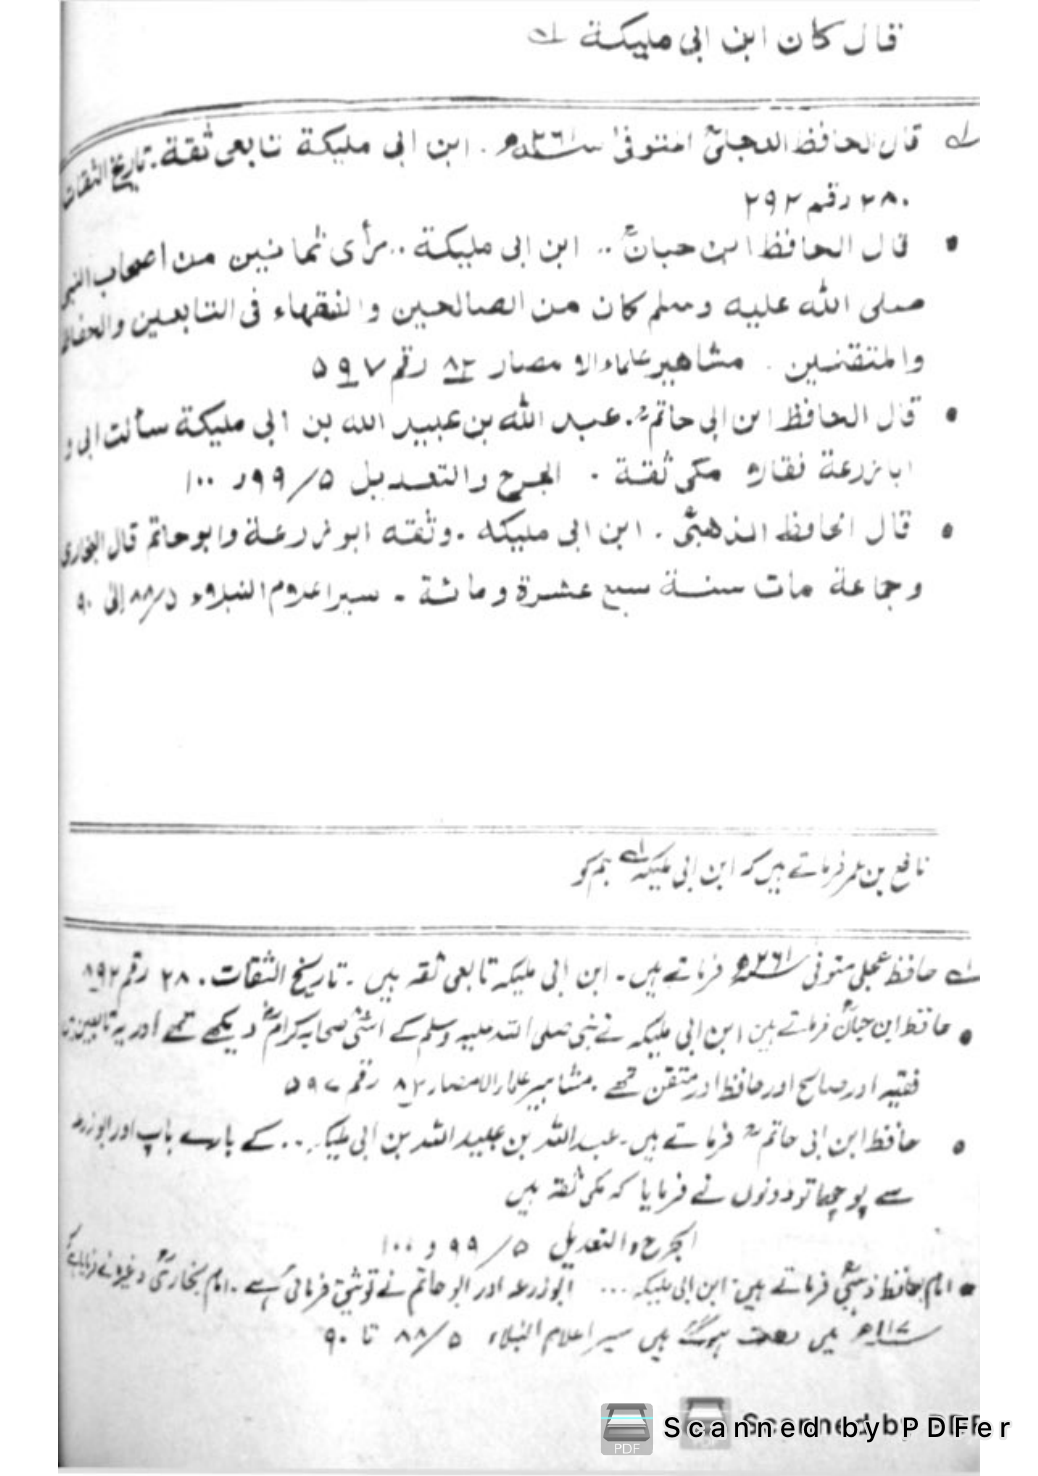 قال كان ابن ابى مليكة لہ
لہ قال الحافظ العجلیؒ المتوفیٰ سنہ ٢٦١ھ . ابن ابى مليكة تابعى ثقة . تاريخ الثقات
٢٨٠ رقم ٢٩٢
• قال الحافظ ابن حبانؒ .. ابن ابى مليكة .. رأى ثمانين من اصحاب النبى
صلى الله عليه وسلم كان من الصالحين والفقهاء فى التابعين والحفاظ
والمتقنين . مشاهير علماء الامصار ٨٢ رقم ٥٩٧
• قال الحافظ ابن ابى حاتمؒ . عبد الله بن عبيد الله بن ابى مليكة سألت ابى و
ابا زرعة فقالا مكى ثقة . الجرح والتعديل ٩٩/٥ و ١٠٠
• قال الحافظ الذهبىؒ . ابن ابى مليكه . وثقه ابو زرعة وابو حاتم قال البخارى
وجماعة مات سنة سبع عشرة ومائة ـ سير اعلام النبلاء ٨٨/٥ إلى ٩٠
نافع بن عمر فرماتے ہیں کہ ابن ابی ملیکہ لہ ہم کو
لہ حافظ عجلی متوفی سنہ ٢٦١ھ فرماتے ہیں ۔ ابن ابی ملیکہ تابعی ثقہ ہیں ۔ تاریخ الثقات . ٢٨ رقم ٨٩٢
• حافظ ابن حبانؒ فرماتے ہیں ابن ابی ملیکہ نے نبی صلی اللہ علیہ وسلم کے اسّی صحابہ کرامؓ دیکھے تھے اور یہ تابعین
فقیہ اور صالح اور حافظ اور متقن تھے . مشاہیر علماء الامصار ٨٢ رقم ٥٩٧
• حافظ ابن ابی حاتمؒ فرماتے ہیں ۔ عبد اللہ بن عبید اللہ بن ابی ملیکہ .. کے بارے باپ اور ابوزرعہ
سے پوچھا تو دونوں نے فرمایا کہ مکی ثقہ ہیں
الجرح والتعدیل ٩٩/٥ و ١٠٠
• امام حافظ ذہبیؒ فرماتے ہیں ۔ ابن ابی ملیکہ ... ابوزرعہ اور ابو حاتم نے توثیق فرمائی ہے . امام بخاریؒ وغیرہ نے فرمایا ہے کہ
سنہ ١١٧ھ میں فوت ہوگئے ہیں سیر اعلام النبلاء ٨٨/٥ تا ٩٠
Scanned by PDFer